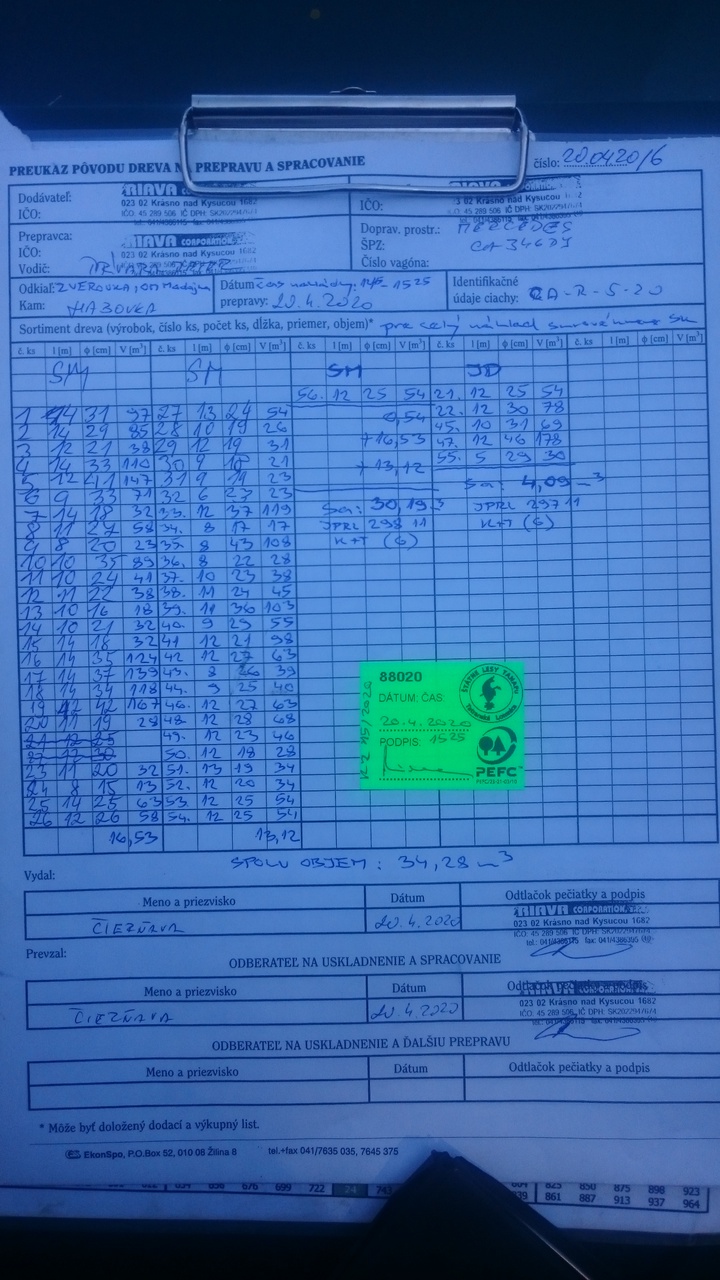 PREUKAZ PÔVODU DREVA NA PREPRAVU A SPRACOVANIE
číslo: 20.0420/6
Dodávateľ:
IČO:
RIAVA CORPORATION
023 02 Krásno nad Kysucou 1682
IČO:
023 02 Krásno nad Kysucou 1682
Prepravca:
IČO:
Vodič:
RIAVA CORPORATION
023 02 Krásno nad Kysucou 1682
Doprav. prostr.: MERCEDES
ŠPZ: CA 346DJ
Číslo vagóna:
Odkiaľ: ZVEROVKA, OM
Kam: HABOVKA
Dátum čas nakládky: 15 25
prepravy: 20.4.2020
Identifikačné
údaje ciachy: CA-R-S-20
Sortiment dreva (výrobok, číslo ks, počet ks, dĺžka, priemer, objem)* pre celý náklad
č. ks l [m] ϕ [cm] V [m³] č. ks l [m] ϕ [cm] V [m³] č. ks l [m] ϕ [cm] V [m³] č. ks l [m] ϕ [cm] V [m³] č. ks l [m] ϕ [cm] V [m³]
SM SM SM JD
56. 12 25 54 21. 12 25 54
1 14 31 97 27 13 24 54 0,54 22. 12 30 78
2 14 29 85 28 10 19 26 +16,53 45. 10 31 69
3 12 21 38 29 12 19 31 47. 12 46 178
4 14 33 110 30 9 18 21 +13,12 55. 5 29 30
5 12 41 147 31 9 19 23 Sa: 4,09 m³
6 9 33 71 32 6 23 23
7 14 18 32 33. 12 37 119 Sa: 30,19 m³ JPRL 297 11
8 11 27 58 34. 8 17 17 JPRL 298 11 K+T (6)
9 8 20 23 35. 8 43 108 K+T (6)
10 10 35 89 36. 8 22 28
11 10 24 41 37. 10 23 38
12 11 22 38 38. 11 24 45
13 10 16 18 39. 11 36 103
14 10 21 32 40. 9 29 55
15 14 18 32 41 12 21 98
16 14 35 124 42 12 27 63
17 14 37 139 43. 8 26 39
18 14 34 118 44. 9 25 40
19 12 42 167 46. 12 27 63
20 11 19 28 48 12 28 68
21 12 25 49. 12 23 46
22 12 30 50. 12 18 28
23 11 20 32 51. 13 19 34
24 8 15 13 52. 12 20 34
25 14 25 63 53 12 25 54
26 12 26 58 54. 12 25 54
16,53 13,12
88020
DÁTUM: ČAS:
20.4.2020
PODPIS: 15 25
ŠTÁTNE LESY TANAPU
Tatranská Lomnica
PEFC
SPOLU OBJEM: 34,28 m³
Vydal:
Meno a priezvisko Dátum Odtlačok pečiatky a podpis
ČIEZŇAVA 20.4.2020
RIAVA CORPORATION
023 02 Krásno nad Kysucou 1682
Prevzal:
ODBERATEĽ NA USKLADNENIE A SPRACOVANIE
Meno a priezvisko Dátum Odtlačok pečiatky a podpis
ČIEZŇAVA 20.4.2020
023 02 Krásno nad Kysucou 1682
ODBERATEĽ NA USKLADNENIE A ĎALŠIU PREPRAVU
Meno a priezvisko Dátum Odtlačok pečiatky a podpis
* Môže byť doložený dodací a výkupný list.
EkonSpo, P.O.Box 52, 010 08 Žilina 8 tel.+fax 041/7635 035, 7645 375
825 850 875 898 923
861 887 913 937 964